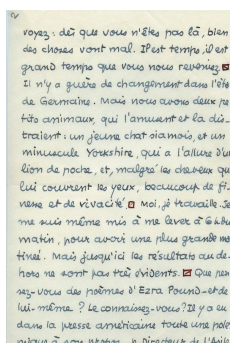 voyez: dès que vous n'êtes pas là, bien
des choses vont mal. Il est temps, il est
grand temps que vous nous reveniez.
Il n'y a guère de changement dans l'état
de Germaine. Mais nous avons deux pe-
tits animaux, qui l'amusent et la dis-
traient: un jeune chat siamois, et un
minuscule Yorkshire, qui a l'allure d'un
lion de poche, et, malgré les cheveux qui
lui couvrent les yeux, beaucoup de fi-
nesse et de vivacité. Moi, je travaille. Je
me suis même mis à me lever à du
matin, pour avoir une plus grande ma-
tinée. Mais jusqu'ici les résultats au de-
hors ne sont pas très évidents. Que pen-
sez-vous des poèmes d'Ezra Pound - et de
lui-même? Le connaissez-vous? Il y a eu
dans la presse américaine toute une polé-
mique à son propos. Directeur de l'Asile